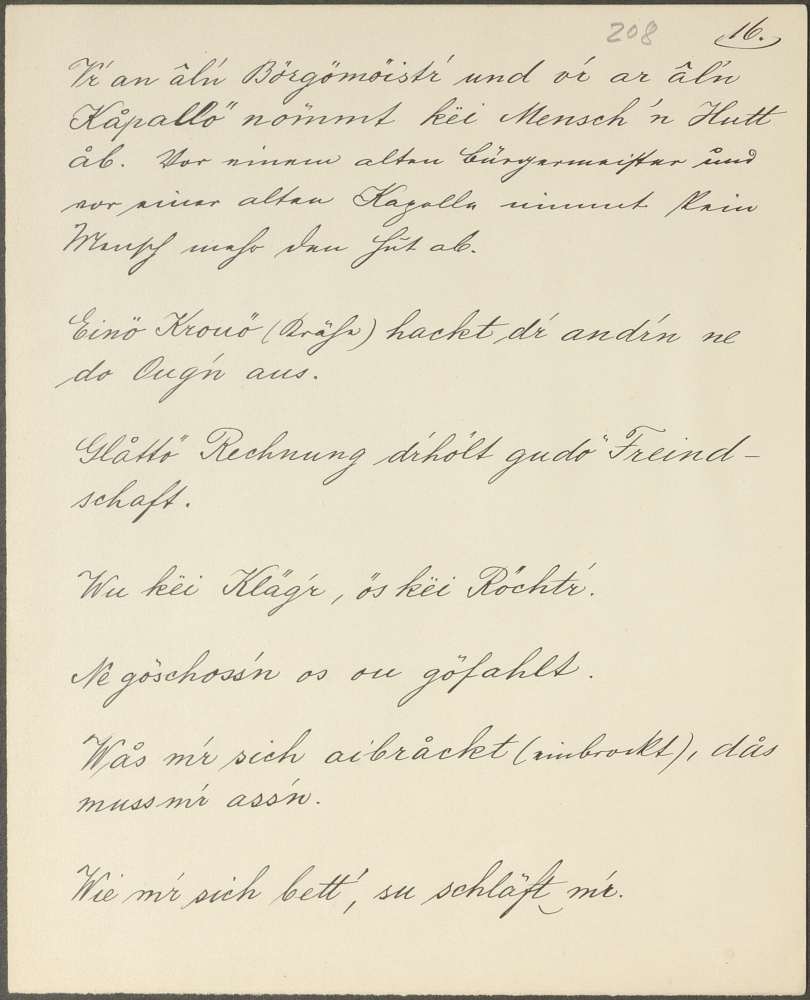 208
16.
Vŕ an âlń Börgömöistŕ und vŕ ar âlń
Kåpallö nömmt këi Mensch 'n Hutt
åb. Vor einem alten Bürgermeister und
vor einer alten Kapelle nimmt kein
Mensch mehr den Hut ab.
Einö Krouö (Krähe) hackt dŕ andŕn ne
do Ougń aus.
Glåttö Rechnung dŕhölt gudö Freind-
schaft.
Wu këi Klägŕ, ös këi Röchtŕ.
Ne göschossń os ou göfahlt.
Wås mŕ sich aibråckt (einbrockt), dås
muss mŕ assń.
Wie mŕ sich bett', su schläft mŕ.